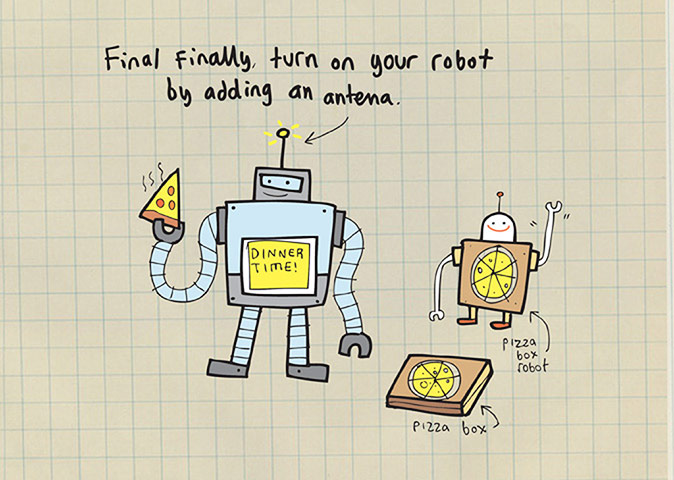 Final Finally, turn on your robot
by adding an antena.
DINNER
TIME!
pizza
box
robot
pizza box